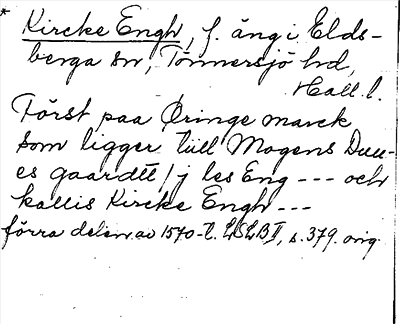 * Kircke Engh, f. äng i Elds-
berga sn, Tönnersjö hd,
Hall. l.
Först paa Øringe marck
som ligger till Mogens Duu-
es gaardtt / j les Eng --- och
kallis Kircke Engh ---
förra delen av 1570-t. LSLB II, s. 379. orig.